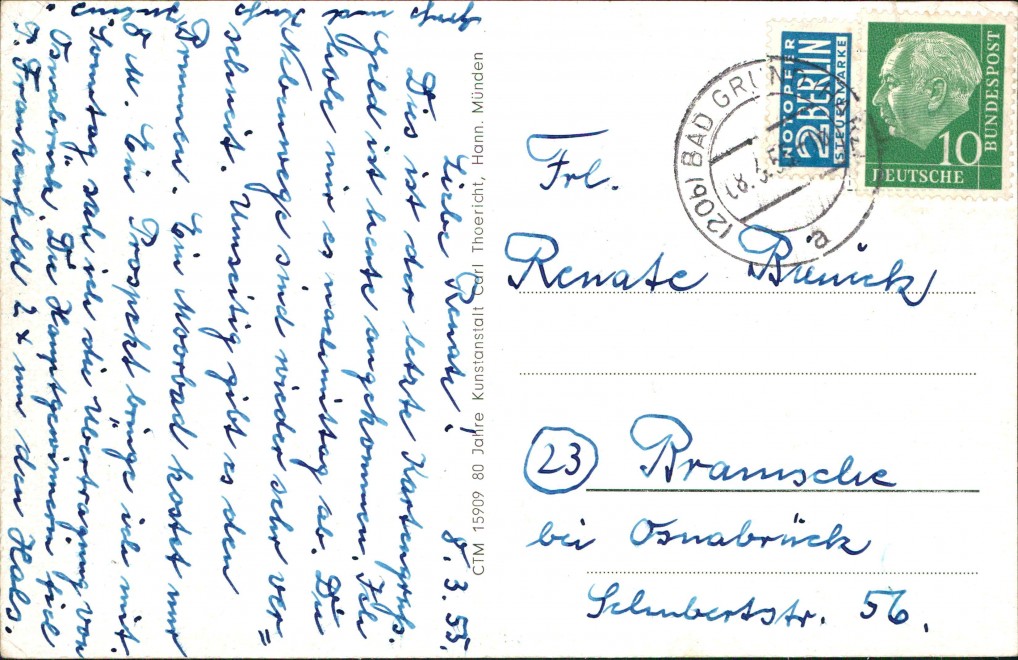 Liebe Renate! 8.3.55.
Dies ist der letzte Kartengruß.
Geld ist heute angekommen. Ich
hole mir es nachmittag ab. Die
Nebenwege sind wieder sehr ver=
schneit. Umseitig gibt es den
Brunnen. Ein Moorbad kostet nur
8 M. Ein Prospekt bringe ich mit.
Sonntag sah ich die Übertragung von
Osnabrück. Die Hauptgewinnerin fiel
P. Frankenfeld 2 x um den Hals.
CTM 15909 80 Jahre Kunstanstalt Carl Thoericht, Hann. Münden
NOTOPFER
2 BERLIN
STEUERMARKE
10
DEUTSCHE
BUNDESPOST
(20b) BAD GRUND
08.3.55
a
Frl.
Renate
Bramsche
(23)
bei Osnabrück
Schubertstr. 56.